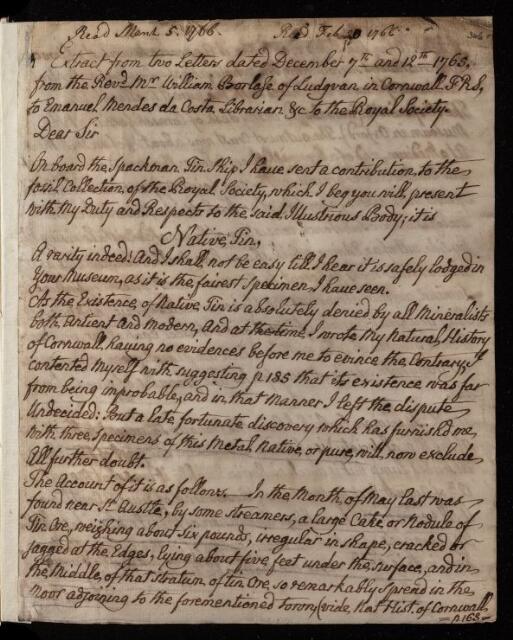 Read March 5. 1766. Read Feb. 20 1766.
Extract from two Letters dated December 7th and 12th 1765.
from the Revd. Mr. William Borlase of Ludgvan in Cornwall F.R.S.
to Emanuel Mendes da Costa, Librarian &c to the Royal Society.
Dear Sir
On board the Spackman Tin Ship I have sent a contribution to the
fossil Collection of the Royal Society, which I beg you will present
with My Duty and Respects to the said Illustrious Body; it is
Native Tin,
A rarity indeed! And I shall not be easy till I hear it is safely lodged in
Your Museum, as it is the fairest Specimen I have seen.
As the Existence of Native Tin is absolutely denied by all Mineralists
both Antient And Modern, And at the time I wrote My Natural History
of Cornwall, having no evidences before me to evince the Contrary, I
contented Myself with suggesting p. 185 that its existence was far
from being improbable, and in that Manner I left the dispute
Undecided: But a late fortunate discovery which has furnish'd me
with three Specimens of this Metal Native, or pure, will now exclude
All further doubt.
The Account of it is as follows. In the Month of May last was
found near St. Austle, by some streamers, a large Cake, or Nodule of
Tin Ore, weighing about Six pounds, irregular in shape, cracked or
jagged at the Edges, lying about five feet under the surface, and in
the Middle, of that stratum of tin Ore, so remarkably Spread in the
Moor adjoining to the forementioned town, (vide, Nat Hist of Cornwall
p. 163